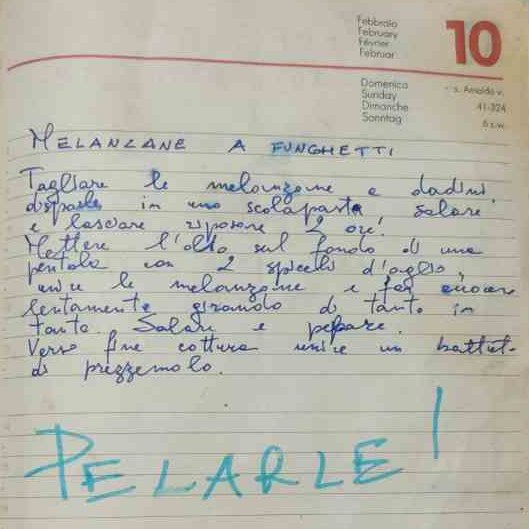 Febbraio
February
Février
Februar
10
Domenica
Sunday
Dimanche
Sonntag
s. Arnaldo v.
41-324
6 s.w.
MELANZANE A FUNGHETTI
Tagliare le melanzane a dadini,
disporle in uno scolapasta salare
e lasciare riposare 2 ore!
Mettere l'olio sul fondo di una
pentola con 2 spicchi d'aglio,
unire le melanzane e far cuocere
lentamente girando di tanto in
tanto. Salare e pepare.
Verso fine cottura unire un battuto
di prezzemolo.
PELARLE!